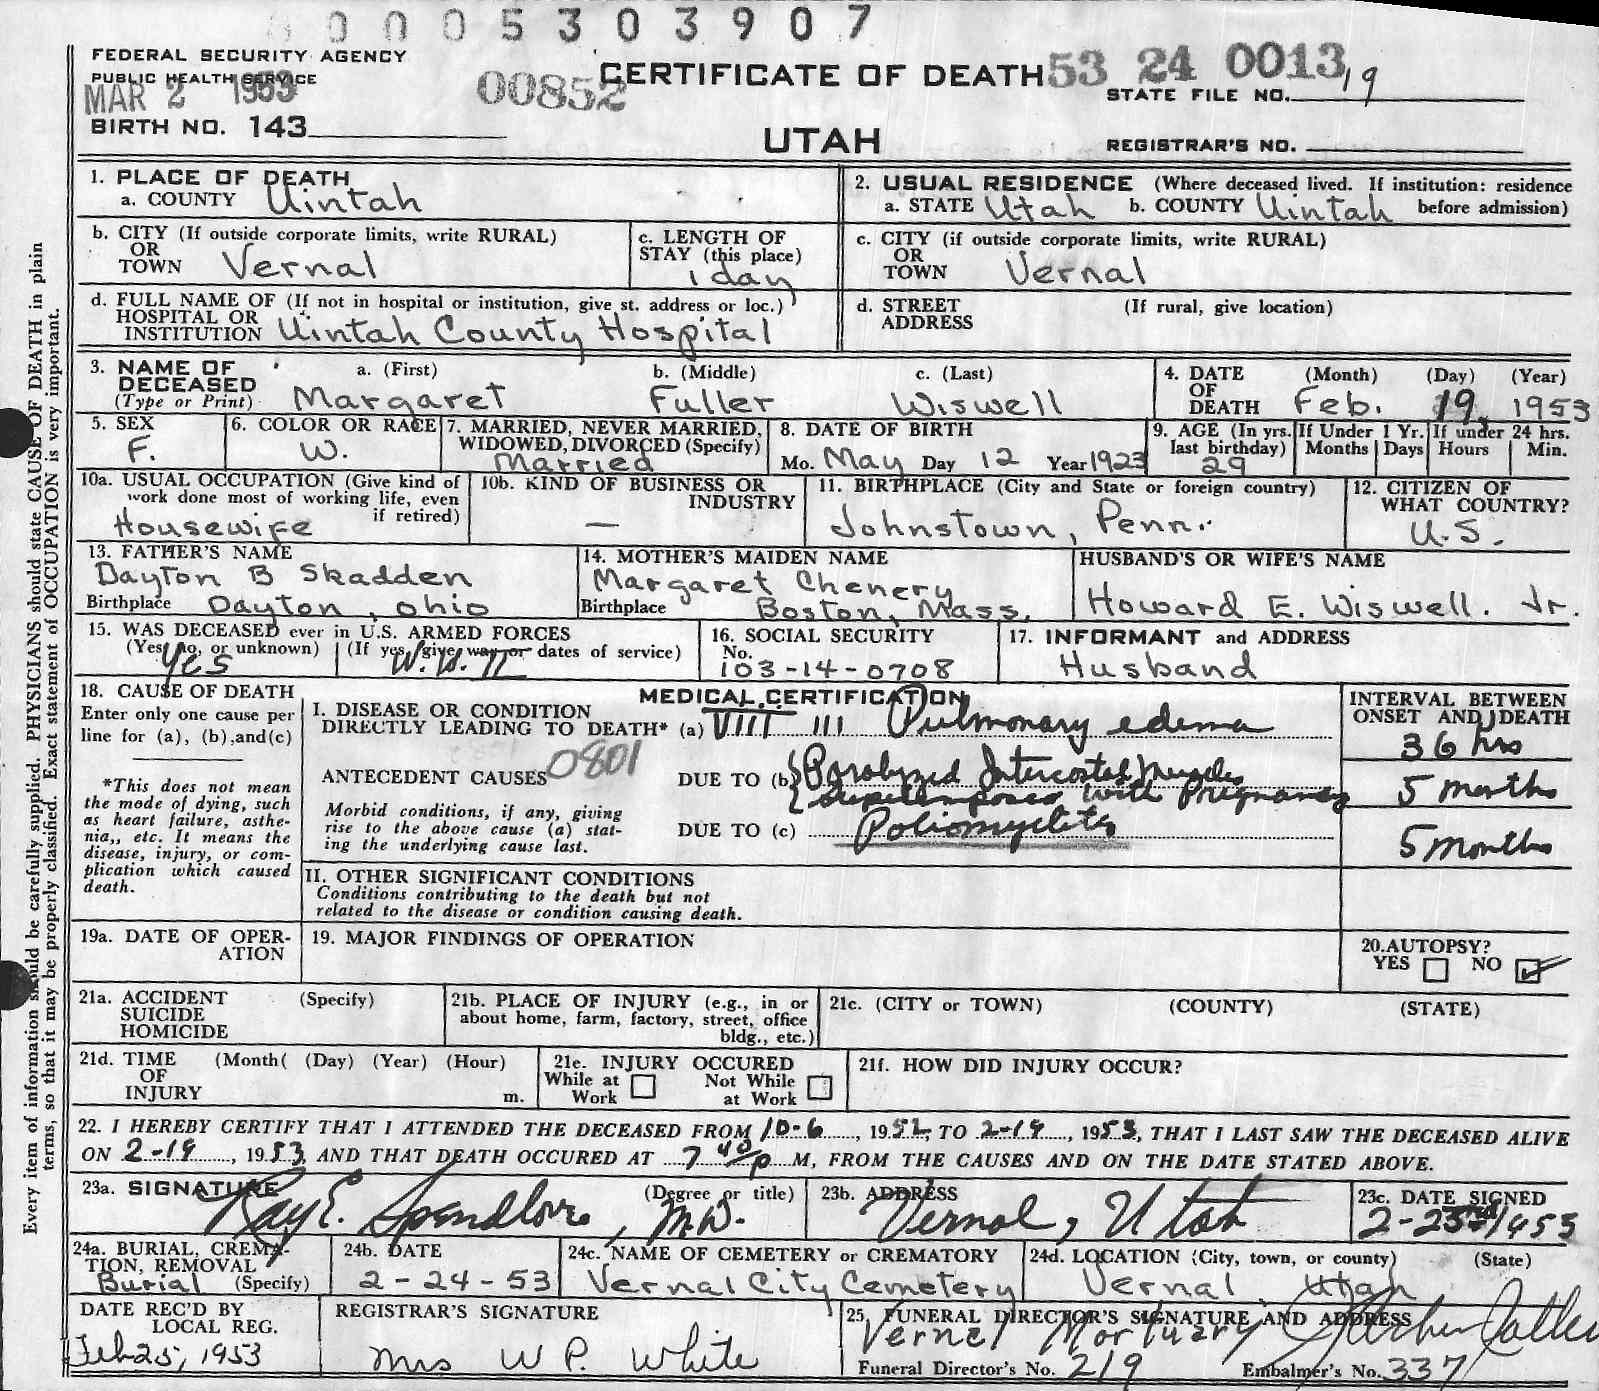 0005303907
FEDERAL SECURITY AGENCY
PUBLIC HEALTH SERVICE
MAR 2 1953
00852
CERTIFICATE OF DEATH
53 24 0013
STATE FILE NO. 19
BIRTH NO. 143
UTAH
REGISTRAR'S NO.
1. PLACE OF DEATH
a. COUNTY Uintah
2. USUAL RESIDENCE (Where deceased lived. If institution: residence
a. STATE Utah b. COUNTY Uintah before admission)
b. CITY (If outside corporate limits, write RURAL)
OR
TOWN Vernal
c. LENGTH OF
STAY (this place)
1 day
c. CITY (if outside corporate limits, write RURAL)
OR
TOWN Vernal
d. FULL NAME OF (If not in hospital or institution, give st. address or loc.)
HOSPITAL OR
INSTITUTION Uintah County Hospital
d. STREET (If rural, give location)
ADDRESS
3. NAME OF a. (First) b. (Middle) c. (Last)
DECEASED
(Type or Print) Margaret Fuller Wiswell
4. DATE (Month) (Day) (Year)
OF
DEATH Feb. 19, 1953
5. SEX
F.
6. COLOR OR RACE
W.
7. MARRIED, NEVER MARRIED,
WIDOWED, DIVORCED (Specify)
Married
8. DATE OF BIRTH
Mo. May Day 12 Year 1923
9. AGE (In yrs.
last birthday)
29
If Under 1 Yr.
Months Days
If under 24 hrs.
Hours Min.
10a. USUAL OCCUPATION (Give kind of
work done most of working life, even
if retired)
Housewife
10b. KIND OF BUSINESS OR
INDUSTRY
—
11. BIRTHPLACE (City and State or foreign country)
Johnstown, Penn.
12. CITIZEN OF
WHAT COUNTRY?
U.S.
13. FATHER'S NAME
Dayton B Skadden
Birthplace Dayton, Ohio
14. MOTHER'S MAIDEN NAME
Margaret Chenery
Birthplace Boston, Mass.
HUSBAND'S OR WIFE'S NAME
Howard E. Wiswell. Jr.
15. WAS DECEASED ever in U.S. ARMED FORCES
(Yes, no, or unknown) (If yes, give war or dates of service)
Yes W.W. II
16. SOCIAL SECURITY
No.
103-14-0708
17. INFORMANT and ADDRESS
Husband
18. CAUSE OF DEATH
Enter only one cause per
line for (a), (b), and (c)
*This does not mean
the mode of dying, such
as heart failure, asthe-
nia,, etc. It means the
disease, injury, or com-
plication which caused
death.
MEDICAL CERTIFICATION
I. DISEASE OR CONDITION
DIRECTLY LEADING TO DEATH* (a) VIII III Pulmonary edema
ANTECEDENT CAUSES 0801
DUE TO (b) Paralyzed Intercostal Muscles
superimposed with Pregnancy
Morbid conditions, if any, giving
rise to the above cause (a) stat-
ing the underlying cause last.
DUE TO (c) Poliomyelitis
INTERVAL BETWEEN
ONSET AND DEATH
36 hrs
5 months
5 months
II. OTHER SIGNIFICANT CONDITIONS
Conditions contributing to the death but not
related to the disease or condition causing death.
19a. DATE OF OPER-
ATION
19. MAJOR FINDINGS OF OPERATION
20. AUTOPSY?
YES NO
21a. ACCIDENT (Specify)
SUICIDE
HOMICIDE
21b. PLACE OF INJURY (e.g., in or
about home, farm, factory, street, office
bldg., etc.)
21c. (CITY or TOWN) (COUNTY) (STATE)
21d. TIME (Month( (Day) (Year) (Hour)
OF
INJURY m.
21e. INJURY OCCURED
While at Work
Not While at Work
21f. HOW DID INJURY OCCUR?
22. I HEREBY CERTIFY THAT I ATTENDED THE DECEASED FROM 10-6, 1952, TO 2-19, 1953, THAT I LAST SAW THE DECEASED ALIVE
ON 2-19, 1953, AND THAT DEATH OCCURED AT 7 40/p M, FROM THE CAUSES AND ON THE DATE STATED ABOVE.
23a. SIGNATURE (Degree or title)
Ray E. Spendlove, M.D.
23b. ADDRESS
Vernal, Utah
23c. DATE SIGNED
2-23 1953
24a. BURIAL, CREMA-
TION, REMOVAL
Burial (Specify)
24b. DATE
2-24-53
24c. NAME OF CEMETERY or CREMATORY
Vernal City Cemetery
24d. LOCATION (City, town, or county) (State)
Vernal, Utah
DATE REC'D BY
LOCAL REG.
Feb 25, 1953
REGISTRAR'S SIGNATURE
Mrs W P. White
25. FUNERAL DIRECTOR'S SIGNATURE AND ADDRESS
Vernal Mortuary
Funeral Director's No. 219 Embalmer's No. 337
Every item of information should be carefully supplied. PHYSICIANS should state CAUSE OF DEATH in plain
terms, so that it may be properly classified. Exact statement of OCCUPATION is very important.